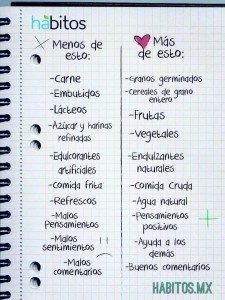 hábitos
Menos de
esto:
-Carne
-Embutidos
-Lácteos
-Azúcar y harinas
refinadas
-Edulcorantes
artificiales
-Comida frita
-Refrescos
-Malos
Pensamientos
-Malos
sentimientos
-Malos
comentarios
Más
de esto:
-Granos germinados
-Cereales de grano
entero
-Frutas
-Vegetales
-Endulzantes
naturales
-Comida Cruda
-Agua natural
-Pensamientos
positivos
-Ayuda a los
demás
-Buenos comentarios
HABITOS.MX